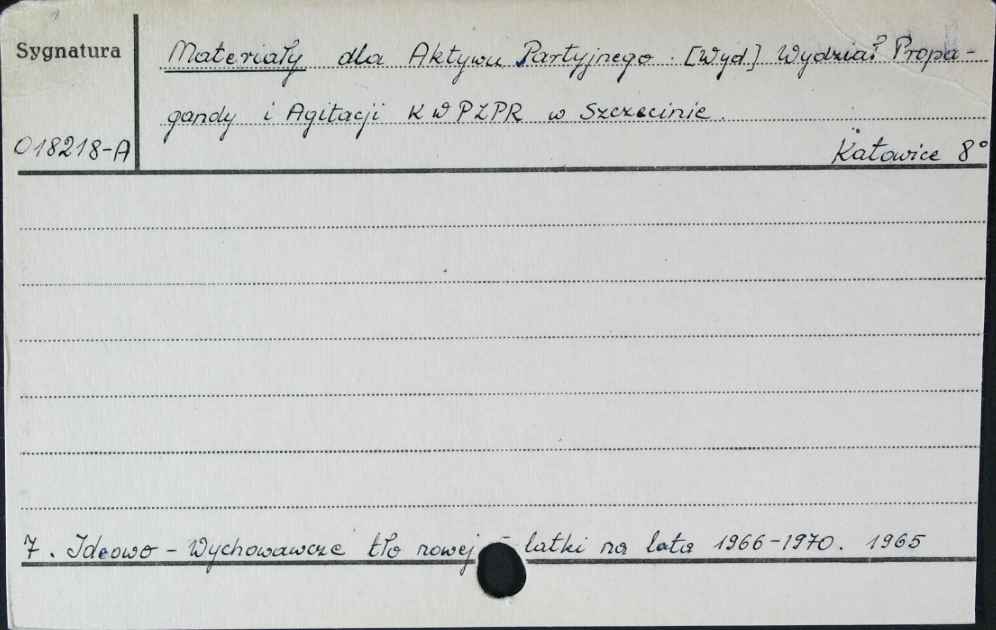 Sygnatura
Materiały dla Aktywu Partyjnego. [Wyd] Wydział Propa-
gandy i Agitacji KWPZPR w Szczecinie.
018218-A
Katowice 8°
7. Ideowo - Wychowawcze tło nowej 5 latki na lata 1966-1970. 1965